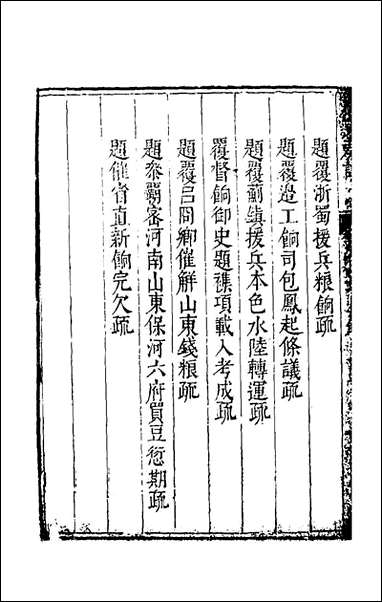 題覆浙蜀援兵粮餉疏
題覆邉工餉司包鳳起條議疏
題覆薊鎮援兵本色水陸轉運疏
覆督餉御史題襍項載入考成疏
題覆呂冏卿催解山東錢粮疏
題叅霸密河南山東保河六府買豆愆期疏
題催省直新餉完欠疏